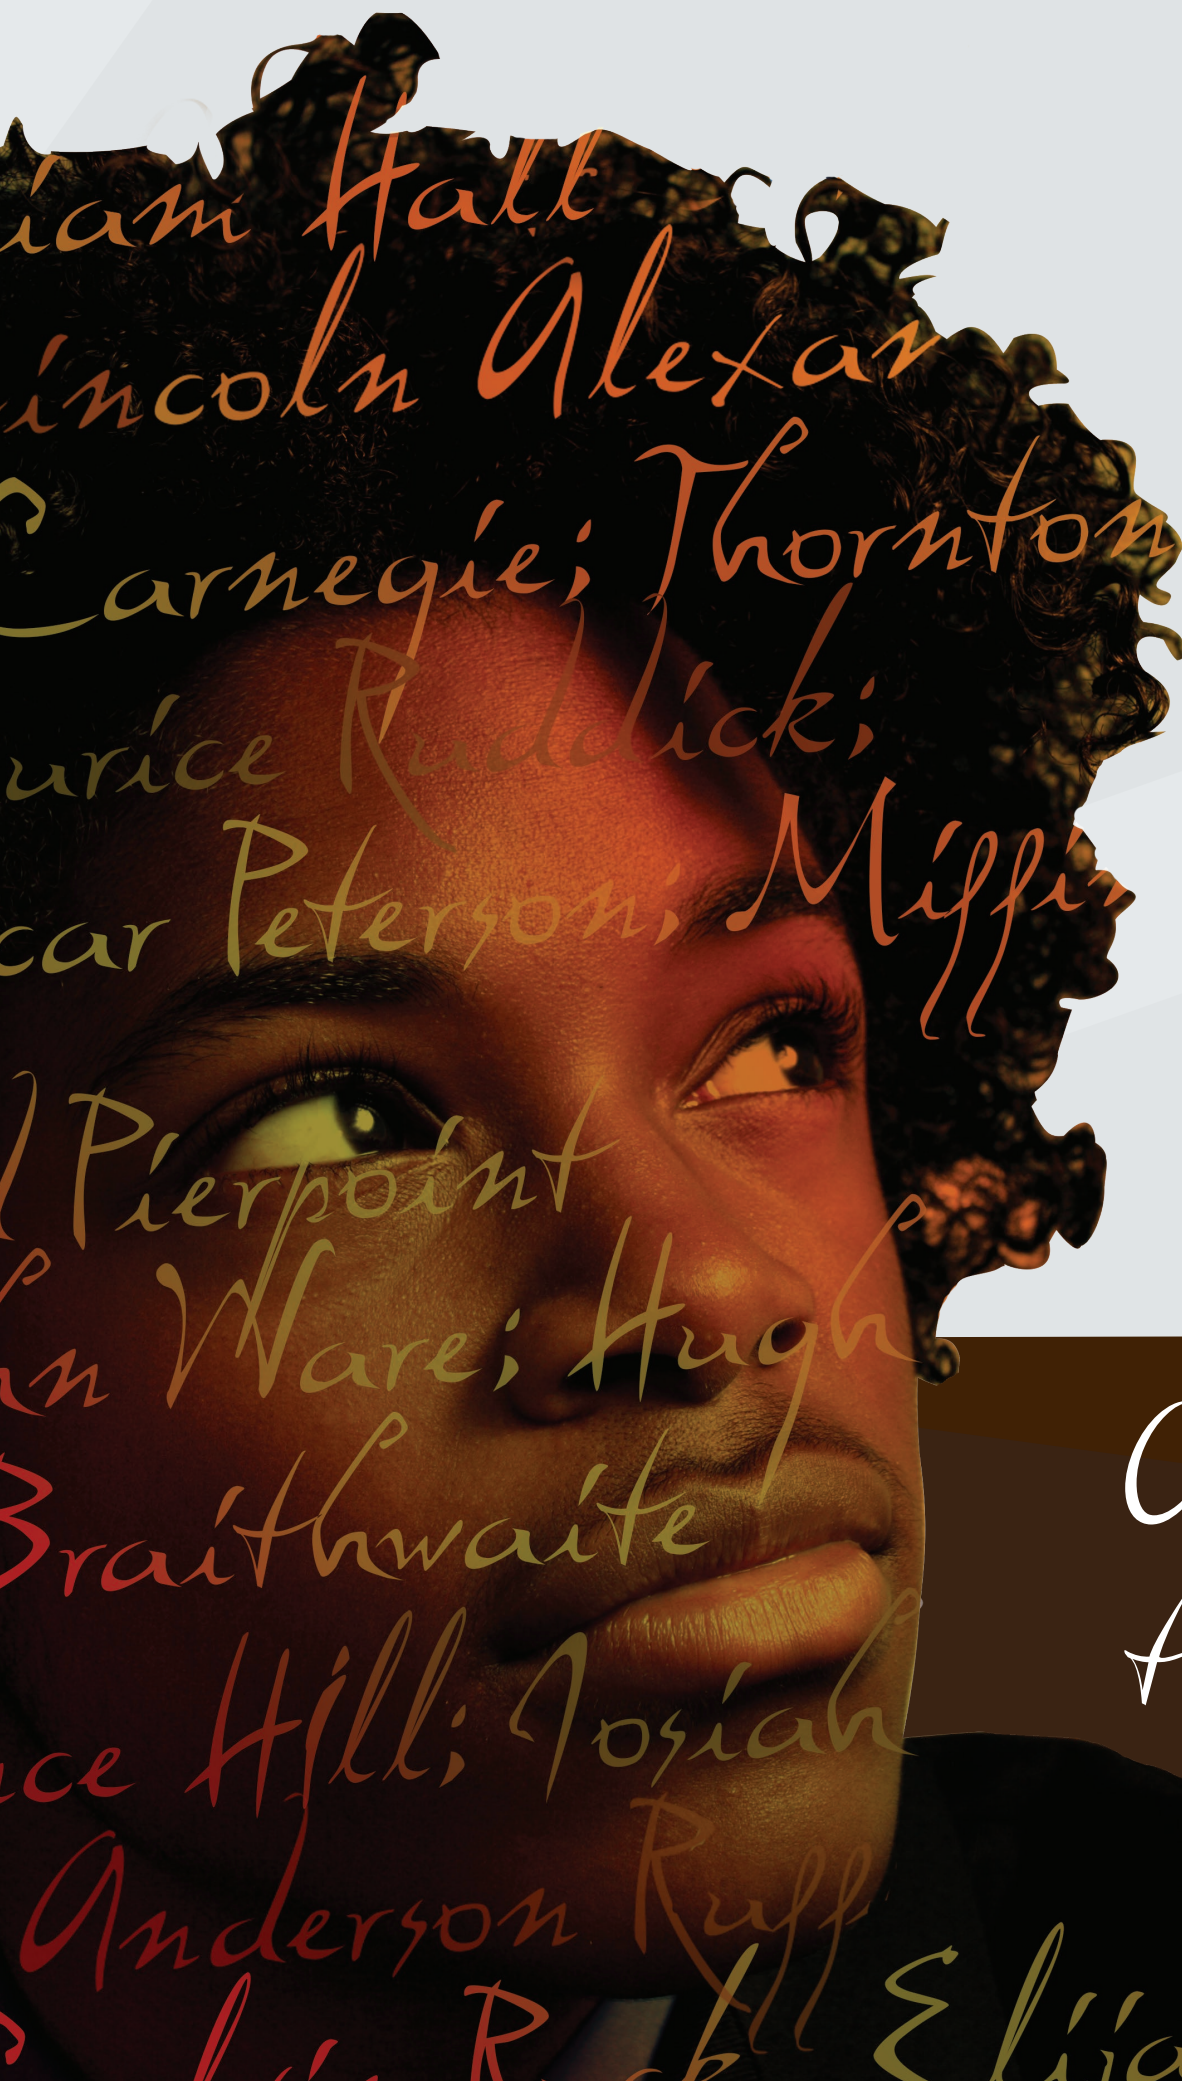 iam Hall
incoln Alexan
Carnegie; Thornton
urice Ruddick;
car Peterson; Miffli
Pierpoint
hn Ware; Hugh
Braithwaite
nce Hill; Josiah
Anderson Ruff
Elija